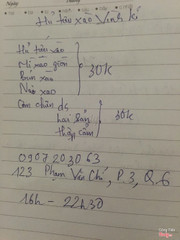 Hủ tiếu xào Vĩnh Kí
Hủ tiếu xào
Mì xào giòn
Bún xào
Nui xào
30k
Cơm chiên dc
hải sản
thập cẩm
30k
0907203063
123 Phạm Văn Chí, P3, Q.6
16h - 22h30